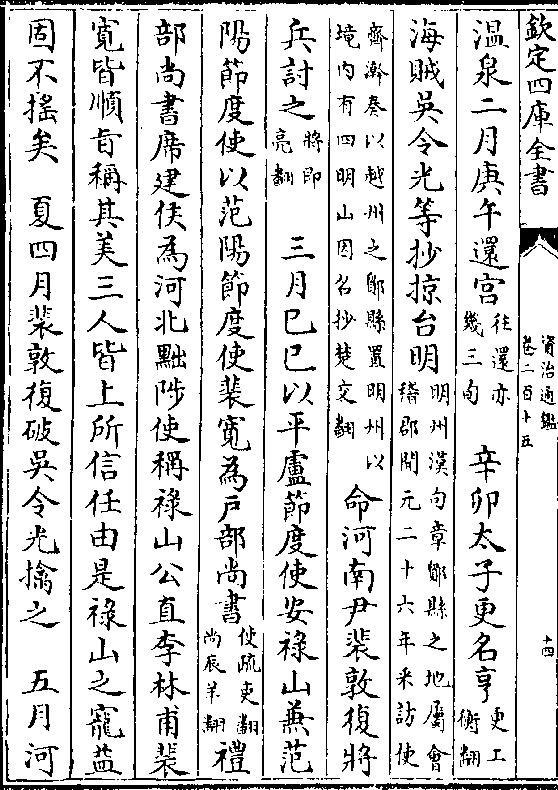 欽定四庫全書
資治通鑑
卷二百十五
十四
温泉二月庚午還宮
往還亦
幾三旬
辛卯太子更名亨
更工
衡翻
海賊吳令光等抄掠台明
明州漢句章鄮縣之地屬會
稽郡開元二十六年采訪使
齊澣奏以越州之鄮縣置明州以
境内有四明山因名抄楚交翻
命河南尹裴敦復將
兵討之
將即
亮翻
三月己巳以平盧節度使安祿山兼范
陽節度使以范陽節度使裴寛為戶部尚書
使疏吏翻
尚辰羊翻
禮
部尚書席建侯為河北黜陟使稱祿山公直李林甫裴
寛皆順旨稱其美三人皆上所信任由是祿山之寵益
固不摇矣 夏四月裴敦復破吳令光擒之 五月河